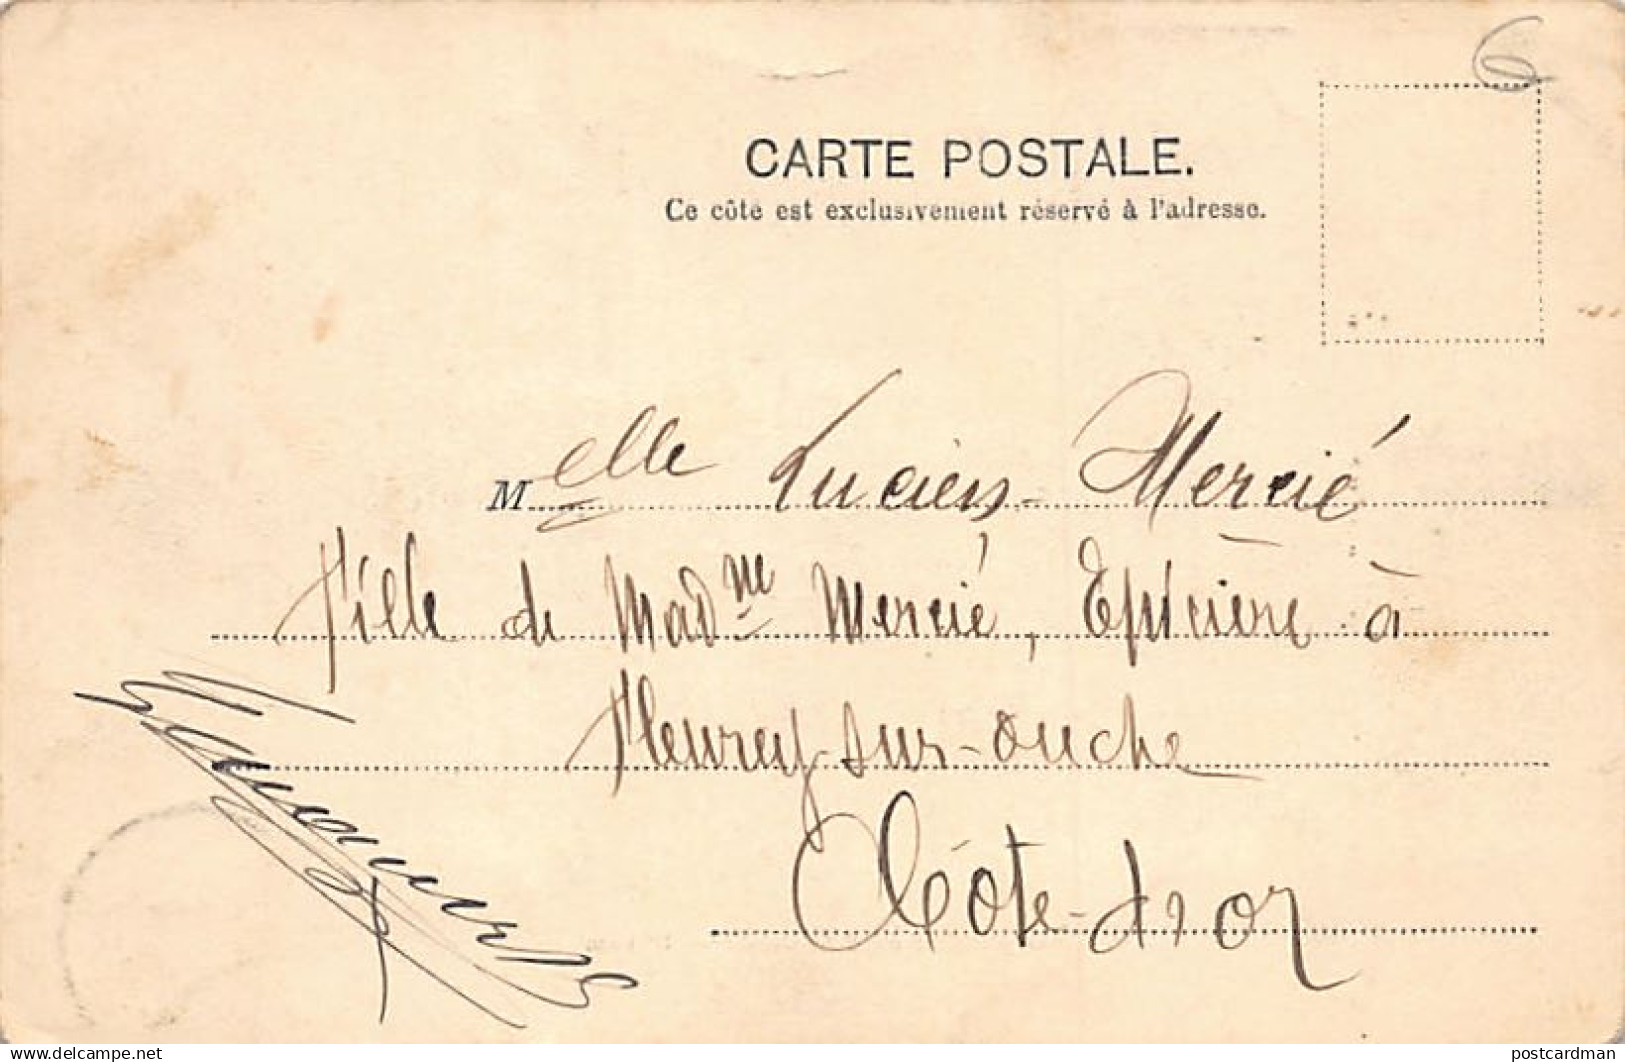 6
CARTE POSTALE.
Ce côté est exclusivement réservé à l'adresse.
Melle Lucien-Mercié
fille de Madme Mercié, Epicière à
Fleurey-sur-Ouche
Côte-d'or
delcampe.net
postcardman